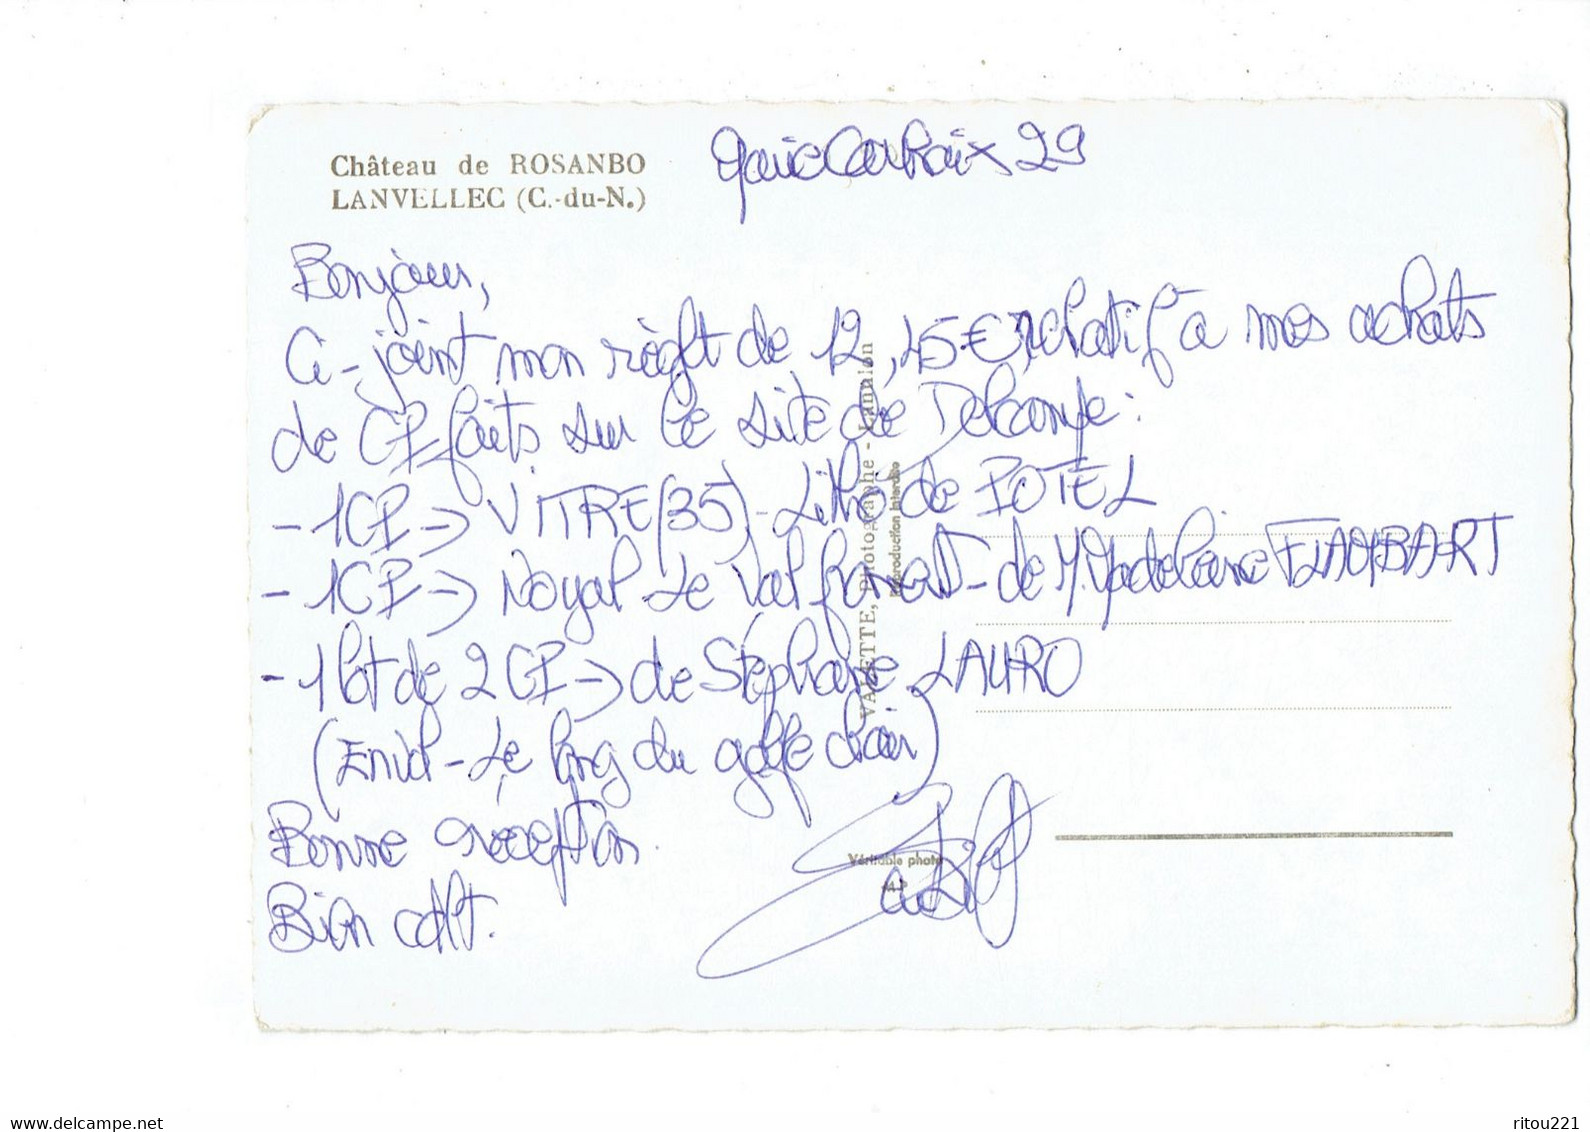 Château de ROSANBO
LANVELLEC (C.-du-N.)
Carhaix 29
Bonjour,
Ci-joint mon règlt de 12,45€, relatif à mes achats
de CP faits sur le site de Delcampe :
- 1CP → VITRE (35) - Litho de POTEL
- 1CP → Noyal Le Val - de M. Madeleine FLAMBART
- 1 lot de 2 CP → de Stéphane LAURO
(Enid - Le long du golfe clair)
Bonne réception.
Bien cdlt.
VALETTE, Photographe - Lannion
Reproduction interdite
Véritable photo
www.delcampe.net
ritou221